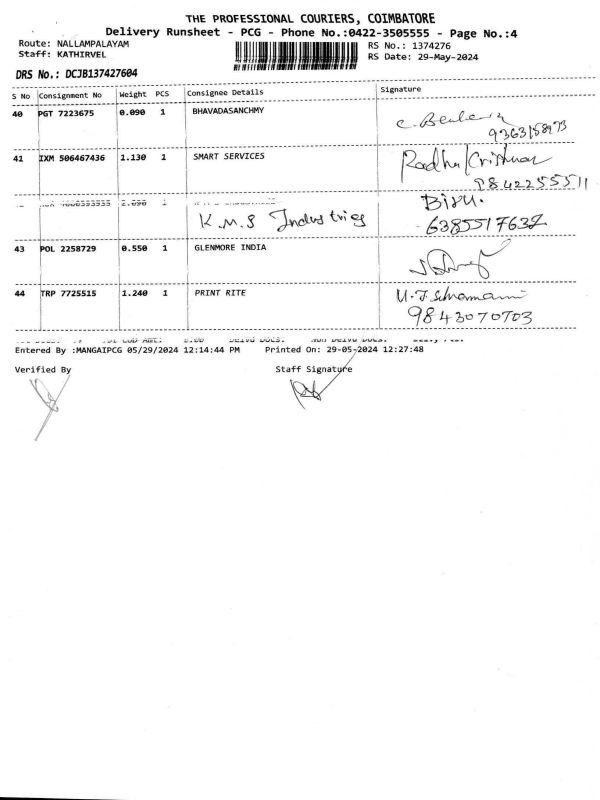 THE PROFESSIONAL COURIERS, COIMBATORE
Delivery Runsheet - PCG - Phone No.:0422-3505555 - Page No.:4
Route: NALLAMPALAYAM
RS No.: 1374276
Staff: KATHIRVEL
RS Date: 29-May-2024
DRS No.: DCJB137427604
S No Consignment No Weight PCS Consignee Details Signature
40 PGT 7223675 0.090 1 BHAVADASANCHMY
41 IXM 506467436 1.130 1 SMART SERVICES Radha/Crishnan
9842255511
2.090 1
K.M.S Industries
6385517632
43 POL 2258729 0.550 1 GLENMORE INDIA
44 TRP 7725515 1.240 1 PRINT RITE
9843070703
Entered By :MANGAIPCG 05/29/2024 12:14:44 PM Printed On: 29-05-2024 12:27:48
Verified By Staff Signature